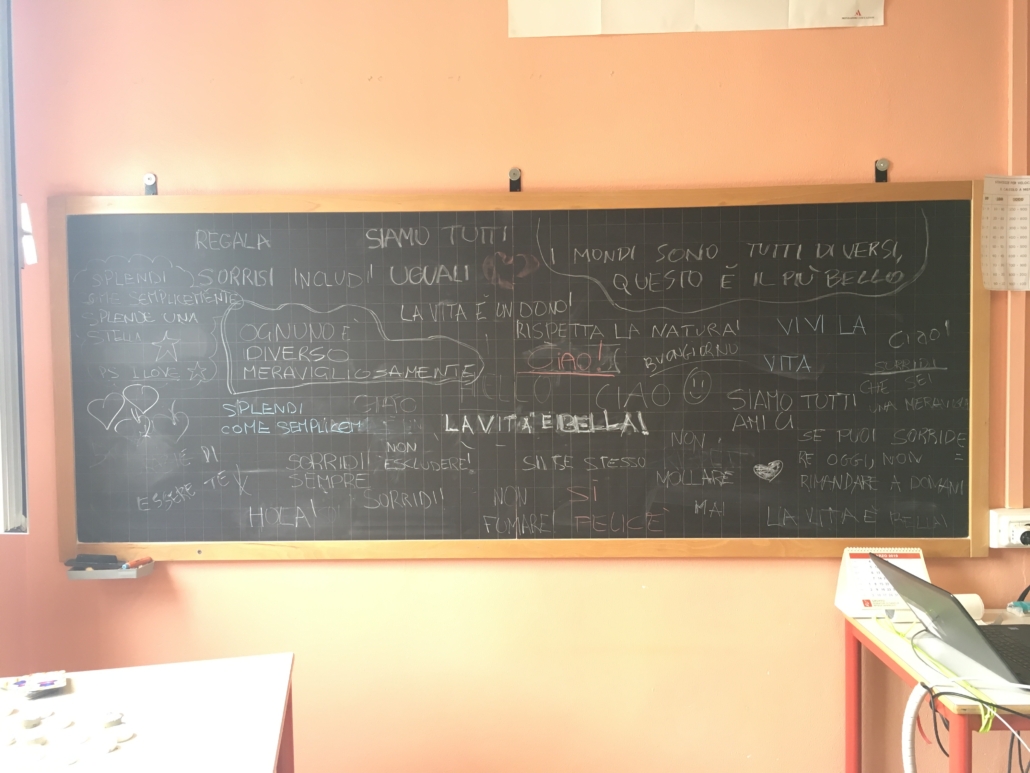 REGALA
SORRISI INCLUDI
SIAMO TUTTI
UGUALI
I MONDI SONO TUTTI DIVERSI,
QUESTO È IL PIÙ BELLO
SPLENDI
COME SEMPLICEMENTE
SPLENDE UNA
STELLA
PS I LOVE
OGNUNO È
DIVERSO
MERAVIGLIOSAMENTE
LA VITA È UN DONO!
RISPETTA LA NATURA!
CIAO!
BUONGIORNO
VIVI LA
VITA
CIAO!
CHE SEI
UNA
HELLO
CIAO
SPLENDI
COME
CIAO
LA VITA È BELLA!
SIAMO TUTTI
AMICI
NON
ESCLUDERE!
SORRIDI
SEMPRE
SORRIDI!
DI
ESSERE TE
HOLA!
SII TE STESSO
NON
FUMARE
SÌ
FELICE
NON
MOLLARE
MAI
SE PUOI SORRIDE
RE OGGI, NON =
RIMANDARE A DOMANI
LA VITA È BELLA!